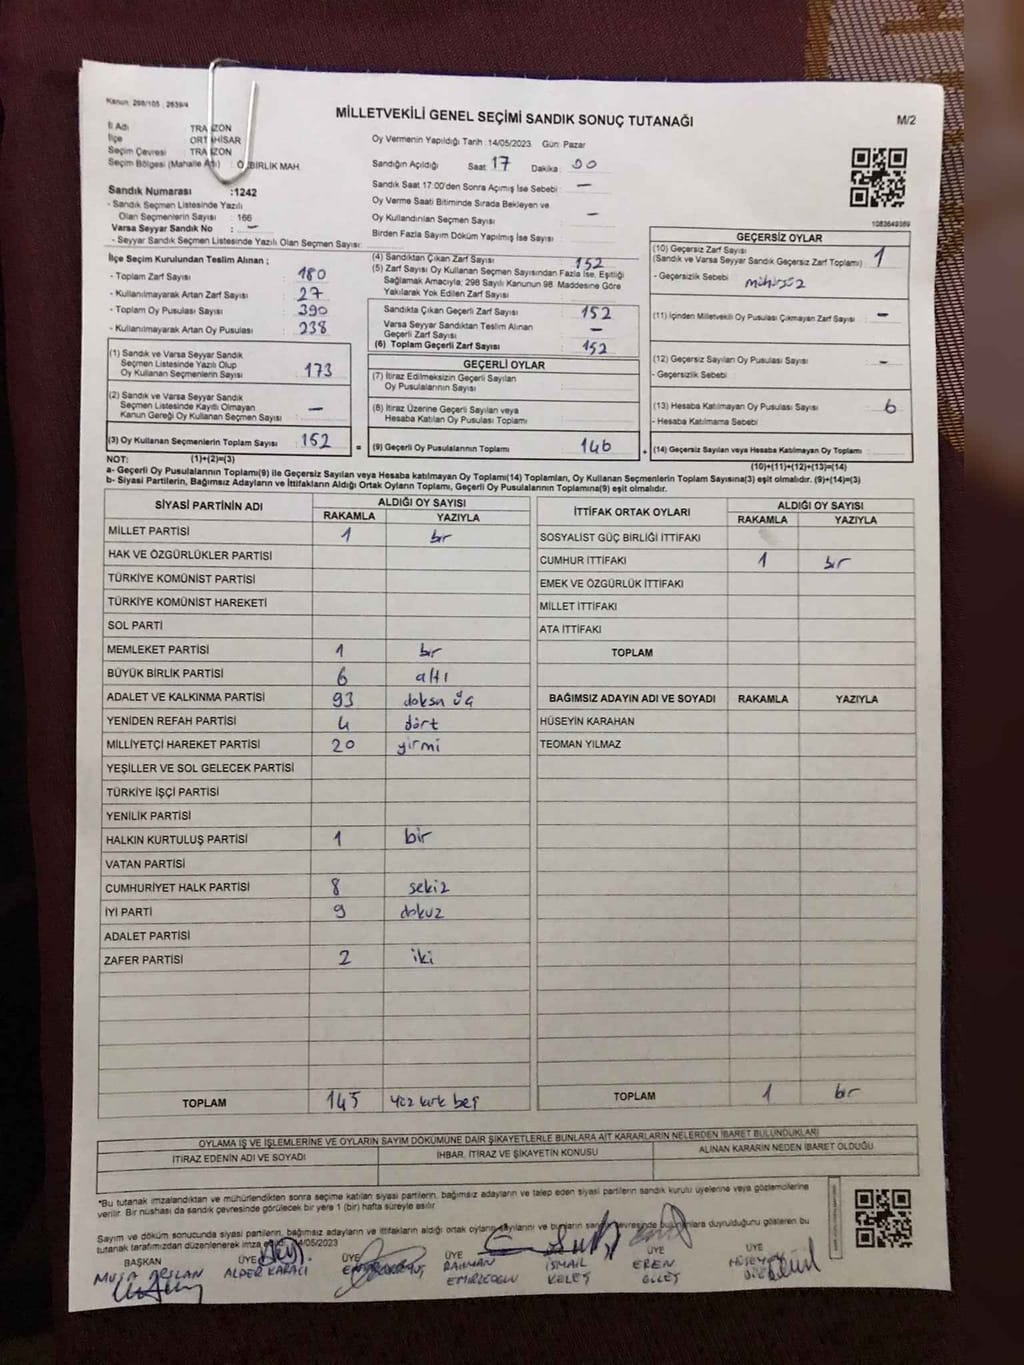 Kanun: 298/105 ; 2839/4
MİLLETVEKİLİ GENEL SEÇİMİ SANDIK SONUÇ TUTANAĞI
M/2
İl Adı TRA ZON
İlçe ORTAHİSAR
Seçim Çevresi TRA ZON
Seçim Bölgesi (Mahalle Adı) : BİRLİK MAH.
Oy Vermenin Yapıldığı Tarih : 14/05/2023 Gün: Pazar
Sandığın Açıldığı Saat 17 Dakika 00
Sandık Saat 17:00'den Sonra Açımış İse Sebebi : —
Oy Verme Saati Bitiminde Sırada Bekleyen ve
Oy Kullandırılan Seçmen Sayısı : —
Birden Fazla Sayım Döküm Yapılmış İse Sayısı :
1083649389
Sandık Numarası :1242
- Sandık Seçmen Listesinde Yazılı
Olan Seçmenlerin Sayısı : 166
Varsa Seyyar Sandık No : —
- Seyyar Sandık Seçmen Listesinde Yazılı Olan Seçmen Sayısı:
İlçe Seçim Kurulundan Teslim Alınan ;
- Toplam Zarf Sayısı : 180
- Kullanılmayarak Artan Zarf Sayısı : 27
- Toplam Oy Pusulası Sayısı : 390
- Kullanılmayarak Artan Oy Pusulası : 238
(1) Sandık ve Varsa Seyyar Sandık
Seçmen Listesinde Yazılı Olup
Oy Kullanan Seçmenlerin Sayısı : 173
(2) Sandık ve Varsa Seyyar Sandık
Seçmen Listesinde Kayıtlı Olmayan
Kanun Gereği Oy Kullanan Seçmen Sayısı : —
(3) Oy Kullanan Seçmenlerin Toplam Sayısı : 152
(4) Sandıktan Çıkan Zarf Sayısı : 152
(5) Zarf Sayısı Oy Kullanan Seçmen Sayısından Fazla İse, Eşitliği
Sağlamak Amacıyla; 298 Sayılı Kanunun 98. Maddesine Göre
Yakılarak Yok Edilen Zarf Sayısı :
Sandıkta Çıkan Geçerli Zarf Sayısı : 152
Varsa Seyyar Sandıktan Teslim Alınan
Geçerli Zarf Sayısı : —
(6) Toplam Geçerli Zarf Sayısı : 152
GEÇERLİ OYLAR
(7) İtiraz Edilmeksizin Geçerli Sayılan
Oy Pusulalarının Sayısı :
(8) İtiraz Üzerine Geçerli Sayılan veya
Hesaba Katılan Oy Pusulaları Toplamı :
= (9) Geçerli Oy Pusulalarının Toplamı : 146
GEÇERSİZ OYLAR
(10) Geçersiz Zarf Sayısı
(Sandık ve Varsa Seyyar Sandık Geçersiz Zarf Toplamı) : 1
- Geçersizlik Sebebi : mühürsüz
(11) İçinden Milletvekili Oy Pusulası Çıkmayan Zarf Sayısı : —
(12) Geçersiz Sayılan Oy Pusulası Sayısı : —
- Geçersizlik Sebebi :
(13) Hesaba Katılmayan Oy Pusulası Sayısı : 6
- Hesaba Katılmama Sebebi :
+ (14) Geçersiz Sayılan veya Hesaba Katılmayan Oy Toplamı :
NOT: (1)+(2)=(3)
(10)+(11)+(12)+(13)=(14)
a- Geçerli Oy Pusulalarının Toplamı(9) ile Geçersiz Sayılan veya Hesaba katılmayan Oy Toplamı(14) Toplamları, Oy Kullanan Seçmenlerin Toplam Sayısına(3) eşit olmalıdır. (9)+(14)=(3)
b- Siyasi Partilerin, Bağımsız Adayların ve İttifakların Aldığı Ortak Oyların Toplamı, Geçerli Oy Pusulalarının Toplamına(9) eşit olmalıdır.
SİYASİ PARTİNİN ADI ALDIĞI OY SAYISI
RAKAMLA YAZIYLA
MİLLET PARTİSİ 1 bir
HAK VE ÖZGÜRLÜKLER PARTİSİ
TÜRKİYE KOMÜNİST PARTİSİ
TÜRKİYE KOMÜNİST HAREKETİ
SOL PARTİ
MEMLEKET PARTİSİ 1 bir
BÜYÜK BİRLİK PARTİSİ 6 altı
ADALET VE KALKINMA PARTİSİ 93 doksan üç
YENİDEN REFAH PARTİSİ 4 dört
MİLLİYETÇİ HAREKET PARTİSİ 20 yirmi
YEŞİLLER VE SOL GELECEK PARTİSİ
TÜRKİYE İŞÇİ PARTİSİ
YENİLİK PARTİSİ
HALKIN KURTULUŞ PARTİSİ 1 bir
VATAN PARTİSİ
CUMHURİYET HALK PARTİSİ 8 sekiz
İYİ PARTİ 9 dokuz
ADALET PARTİSİ
ZAFER PARTİSİ 2 iki
TOPLAM 145 yüz kırk beş
İTTİFAK ORTAK OYLARI ALDIĞI OY SAYISI
RAKAMLA YAZIYLA
SOSYALİST GÜÇ BİRLİĞİ İTTİFAKI
CUMHUR İTTİFAKI 1 bir
EMEK VE ÖZGÜRLÜK İTTİFAKI
MİLLET İTTİFAKI
ATA İTTİFAKI
TOPLAM
BAĞIMSIZ ADAYIN ADI VE SOYADI RAKAMLA YAZIYLA
HÜSEYİN KARAHAN
TEOMAN YILMAZ
TOPLAM 1 bir
OYLAMA İŞ VE İŞLEMLERİNE VE OYLARIN SAYIM DÖKÜMÜNE DAİR ŞİKAYETLERLE BUNLARA AİT KARARLARIN NELERDEN İBARET BULUNDUKLARI
İTİRAZ EDENİN ADI VE SOYADI İHBAR, İTİRAZ VE ŞİKAYETİN KONUSU ALINAN KARARIN NEDEN İBARET OLDUĞU
*Bu tutanak imzalandıktan ve mühürlendikten sonra seçime katılan siyasi partilerin, bağımsız adayların ve talep eden siyasi partilerin sandık kurulu üyelerine veya gözlemcilerine
verilir. Bir nüshası da sandık çevresinde görülecek bir yere 1 (bir) hafta süreyle asılır
Sayım ve döküm sonucunda siyasi partilerin, bağımsız adayların ve ittifakların aldığı ortak oyların sayılarını ve bunların sandık çevresinde bulunanlara duyrulduğunu gösteren bu
tutanak tarafımızdan düzenlenerek imza 14/05/2023
BAŞKAN ÜYE ÜYE ÜYE ÜYE ÜYE
MUSA ARSLAN ALPER KARACI RAHMAN EMİRLEOĞLU İSMAİL KELEŞ EREN HÜSEYİN